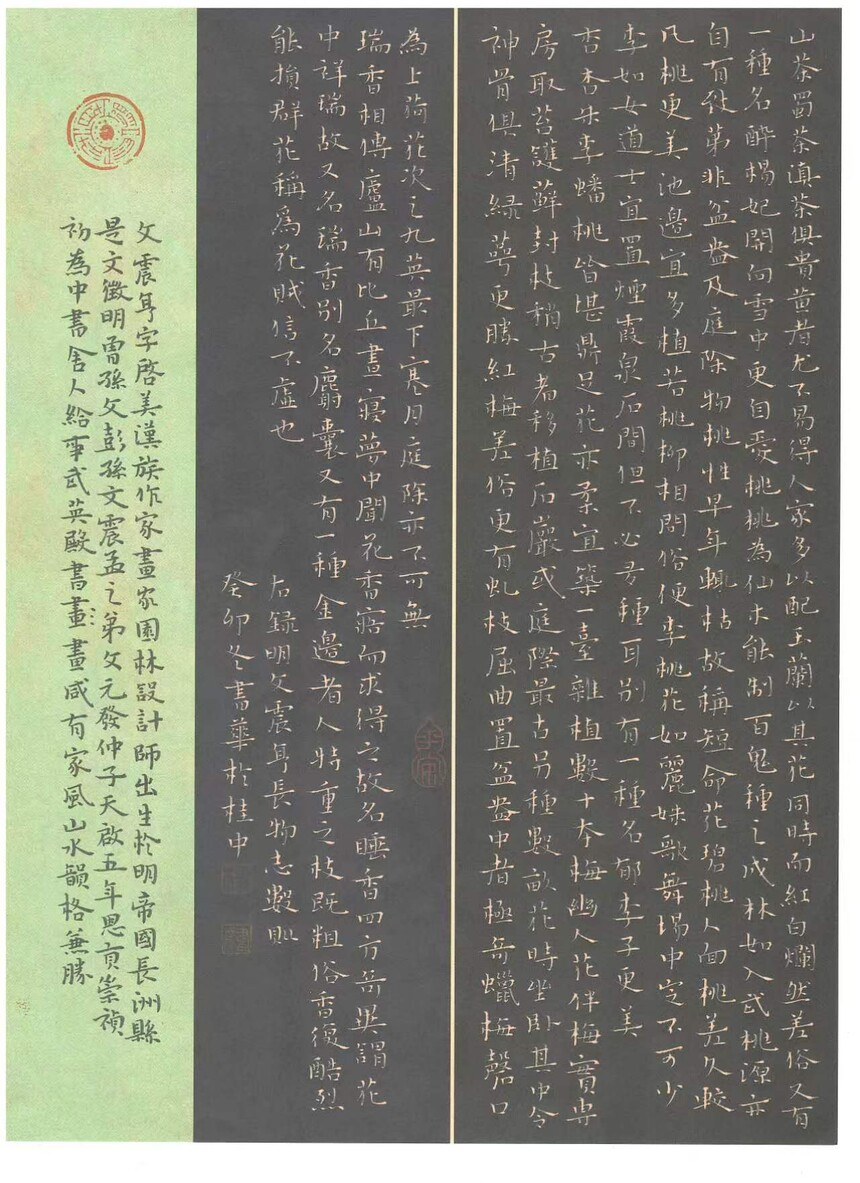 山茶蜀茶滇茶俱貴黄者尤不易得人家多以配玉蘭以其花同時而紅白爛然差俗又有
一種名醉楊妃開向雪中更自愛桃桃為仙木能制百鬼種之成林如入武桃源亦
自有致第非盆盎及庭除物桃性早年輒枯故稱短命花碧桃人面桃差久較
凡桃更美池邊宜多植若桃柳相間俗便李桃花如麗姝歌舞場中定不可少
李如女道士宜置煙霞泉石間但不必多種耳別有一種名郁李子更美
杏杏朱李蟠桃皆堪鼎足花亦柔宜築一臺雜植數十本梅幽人花伴梅實專
房取苔護蘚封枝稍古者移植石巖或庭際最古另種數畝花時坐卧其中令
神骨俱清綠萼更勝紅梅差俗更有虬枝屈曲置盆盎中者極奇蠟梅磬口
為上荷花次之九英最下寒月庭除亦不可無
瑞香相傳廬山有比丘晝寢夢中聞花香寤而求得之故名睡香四方奇異謂花
中祥瑞故又名瑞香別名麝囊又有一種金邊者人特重之枝既粗俗香復酷烈
能損群花稱為花賊信不虛也
右錄明文震亨長物志數則
癸卯冬書華於桂中
文震亨字啓美漢族作家畫家園林設計師出生於明帝國長洲縣
是文徵明曾孫文彭孫文震孟之弟文元發仲子天啟五年恩貢崇禎
初為中書舍人給事武英殿書畫畫咸有家風山水韻格兼勝